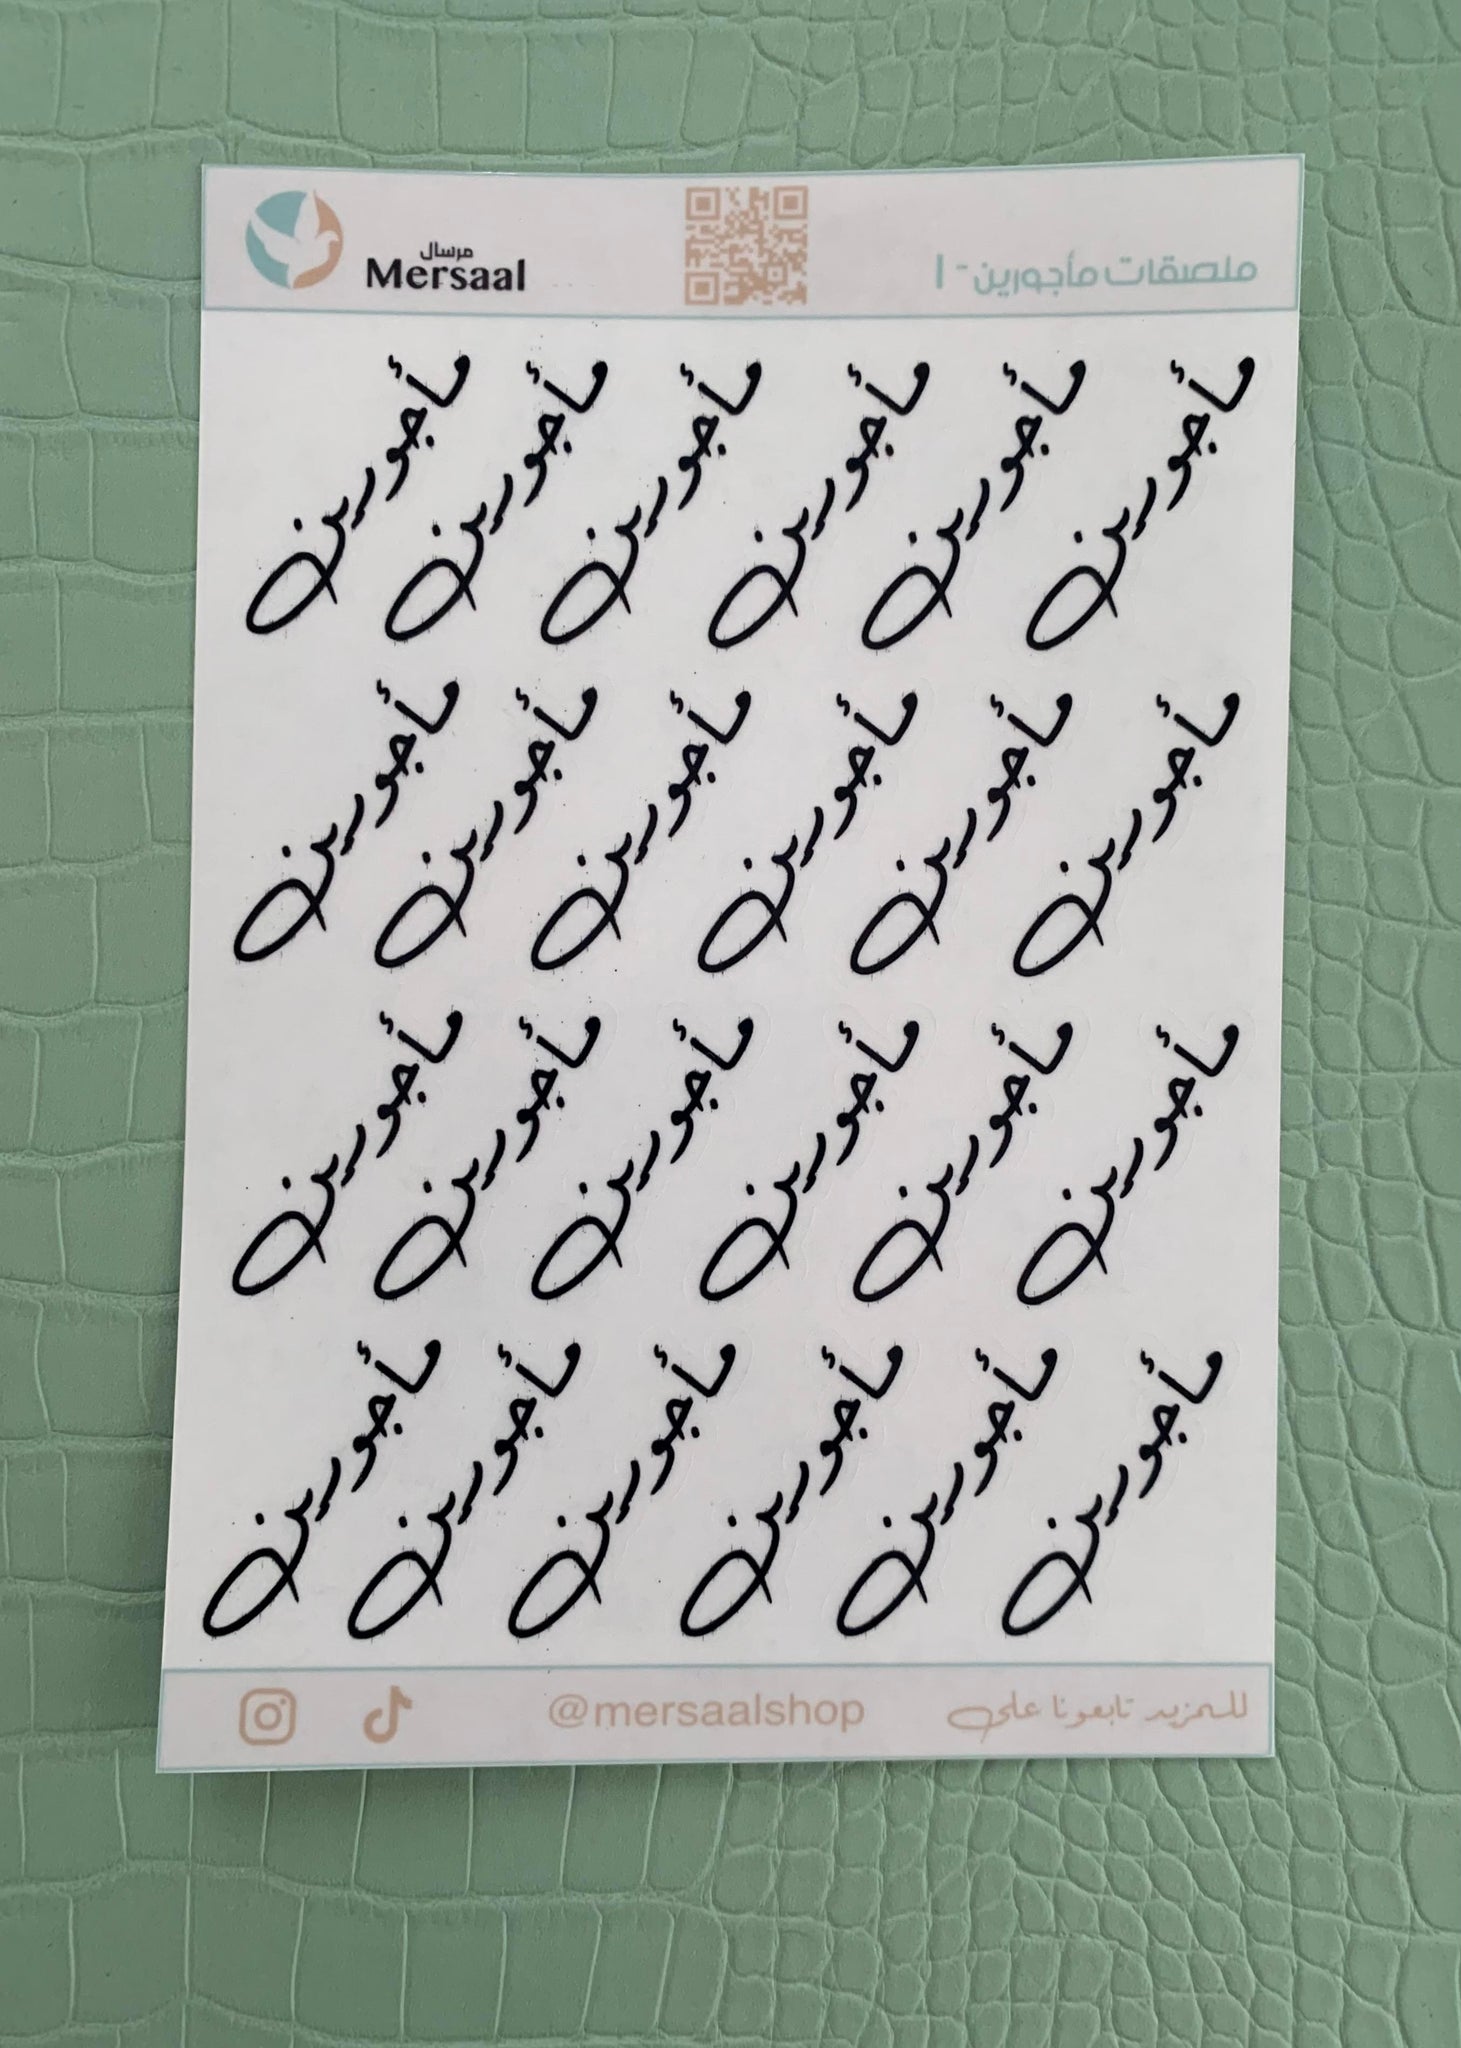 مرسال
Mersaal
ملصقات مأجورين - ١
مأجورين مأجورين مأجورين مأجورين مأجورين مأجورين
مأجورين مأجورين مأجورين مأجورين مأجورين مأجورين
مأجورين مأجورين مأجورين مأجورين مأجورين مأجورين
مأجورين مأجورين مأجورين مأجورين مأجورين مأجورين
للمزيد تابعونا على @mersaalshop